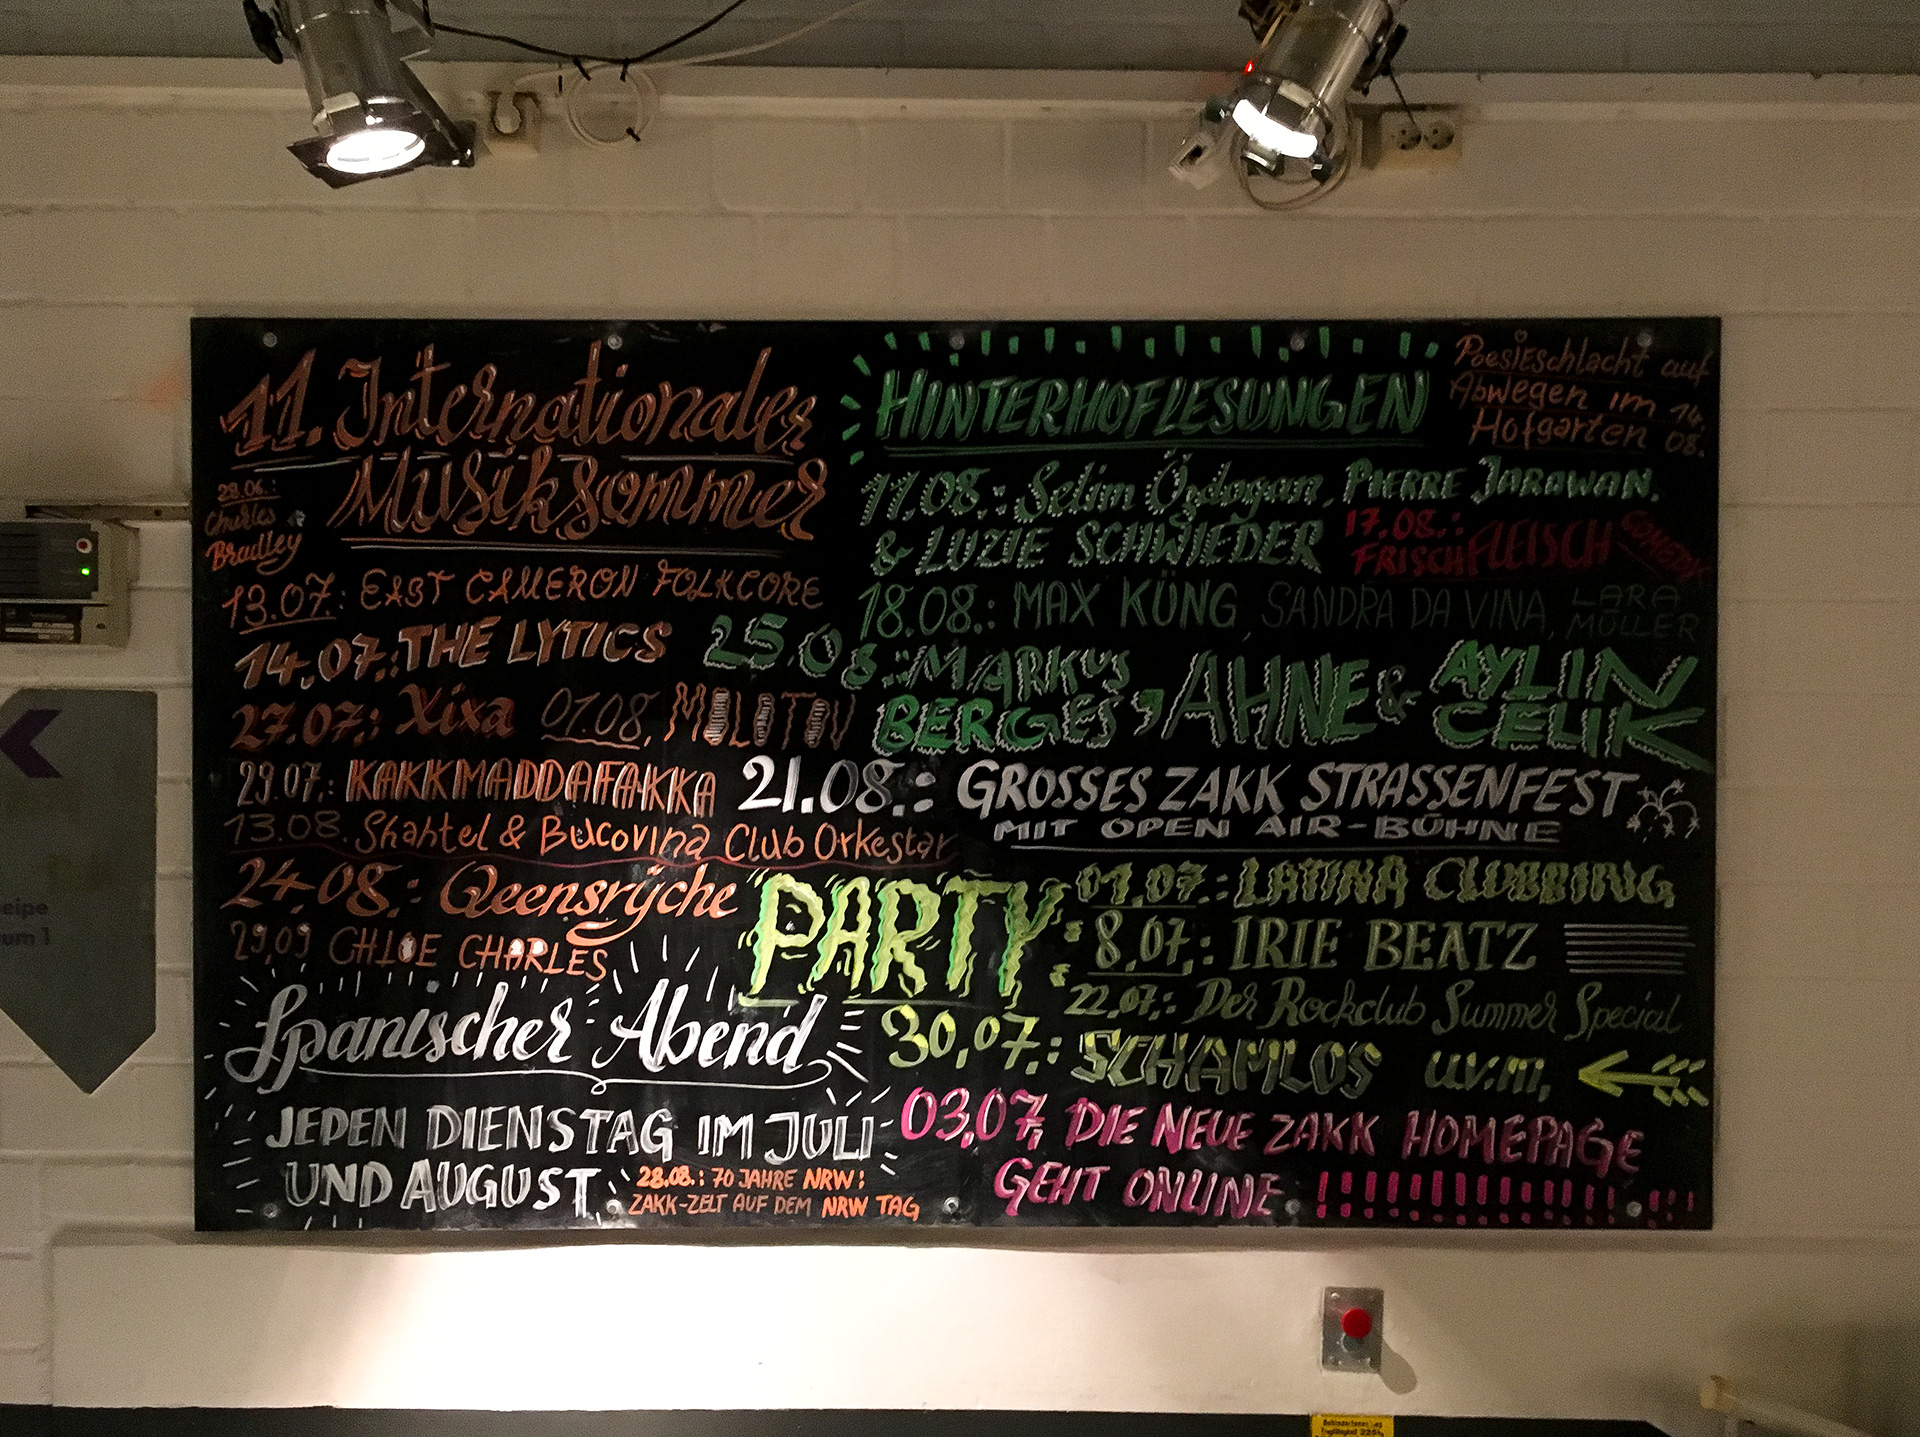 11. Internationaler
Musiksommer
28.06.:
Charles
Bradley
13.07.: EAST CAMERON FOLKCORE
14.07.: THE LYTICS
27.07.: Xixa 01.08. MOLOTOV
29.07.: KAKKMADDAFAKKA
13.08. Shantel & Bucovina Club Orkestar
24.08.: Qeensrÿche
29.09 CHLOE CHARLES
Spanischer Abend
JEDEN DIENSTAG IM JULI
UND AUGUST
28.08.: 70 JAHRE NRW:
ZAKK-ZELT AUF DEM NRW TAG
HINTERHOFLESUNGEN
Poesieschlacht auf
Abwegen im 14.
Hofgarten 08.
11.08.: Selim Özdogan, PIERRE JARAWAN.
& LUZIE SCHWIEDER
17.08.:
FRISCHFLEISCH COMEDY
18.08.: MAX KÜNG, SANDRA DA VINA, LARA
MÜLLER
25.08.: MARKUS
BERGES, AHNE & AYLIN
CELIK
21.08.: GROSSES ZAKK STRASSENFEST
MIT OPEN AIR-BÜHNE
PARTY: 01.07.: LATINA CLUBBING
8.07.: IRIE BEATZ
22.07.: Der Rockclub Summer Special
30.07.: SCHAMLOS u.v.m.
03.07. DIE NEUE ZAKK HOMEPAGE
GEHT ONLINE !!!!!!!!!!!!!!!!!
eipe
um 1